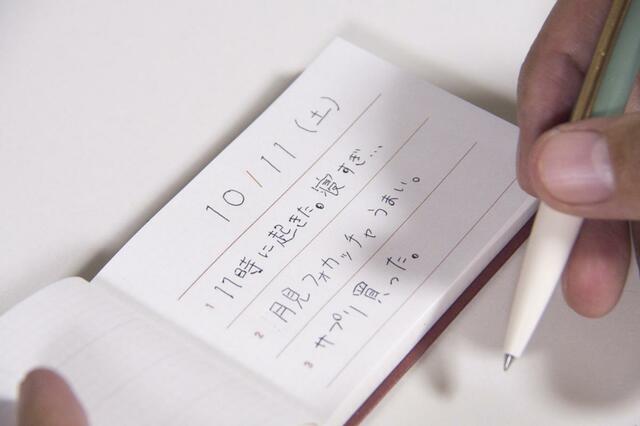 10/11(土)
1 11時に起きた。寝すぎ...
2 月見フォカッチャうまい。
3 サプリ買った。